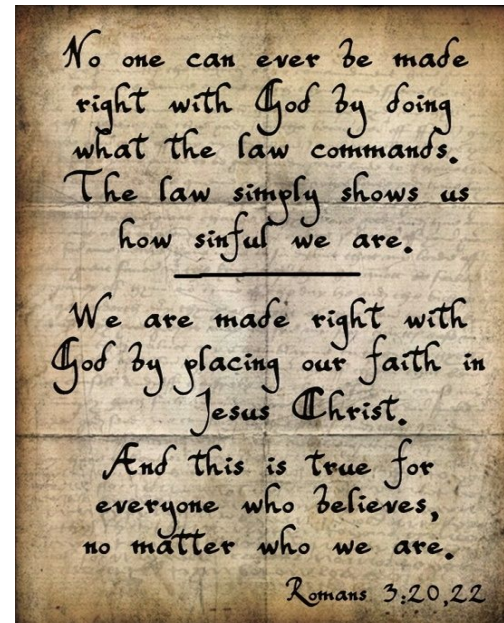 No one can ever be made
right with God by doing
what the law commands.
The law simply shows us
how sinful we are.
We are made right with
God by placing our faith in
Jesus Christ.
And this is true for
everyone who believes,
no matter who we are.
Romans 3:20,22